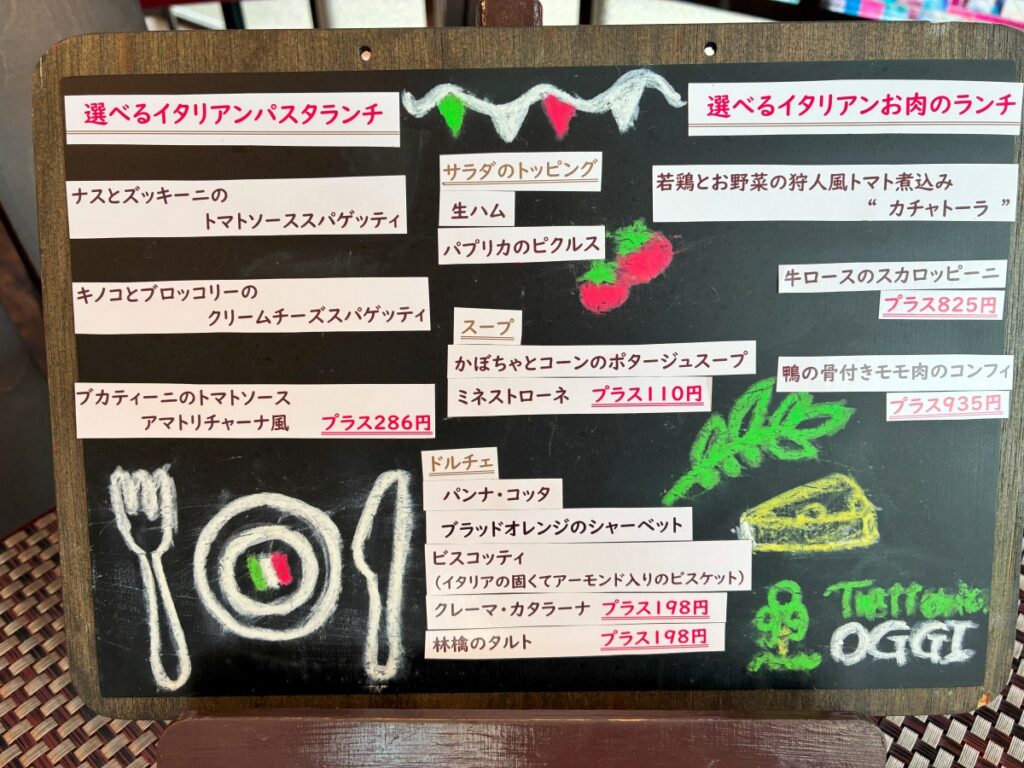 選べるイタリアンパスタランチ
ナスとズッキーニの
トマトソーススパゲッティ
キノコとブロッコリーの
クリームチーズスパゲッティ
ブカティーニのトマトソース
アマトリチャーナ風 プラス286円
サラダのトッピング
生ハム
パプリカのピクルス
スープ
かぼちゃとコーンのポタージュスープ
ミネストローネ プラス110円
ドルチェ
パンナ・コッタ
ブラッドオレンジのシャーベット
ビスコッティ
（イタリアの固くてアーモンド入りのビスケット）
クレーマ・カタラーナ プラス198円
林檎のタルト プラス198円
選べるイタリアンお肉のランチ
若鶏とお野菜の狩人風トマト煮込み
“ カチャトーラ ”
牛ロースのスカロッピーニ
プラス825円
鴨の骨付きモモ肉のコンフィ
プラス935円
OGGI